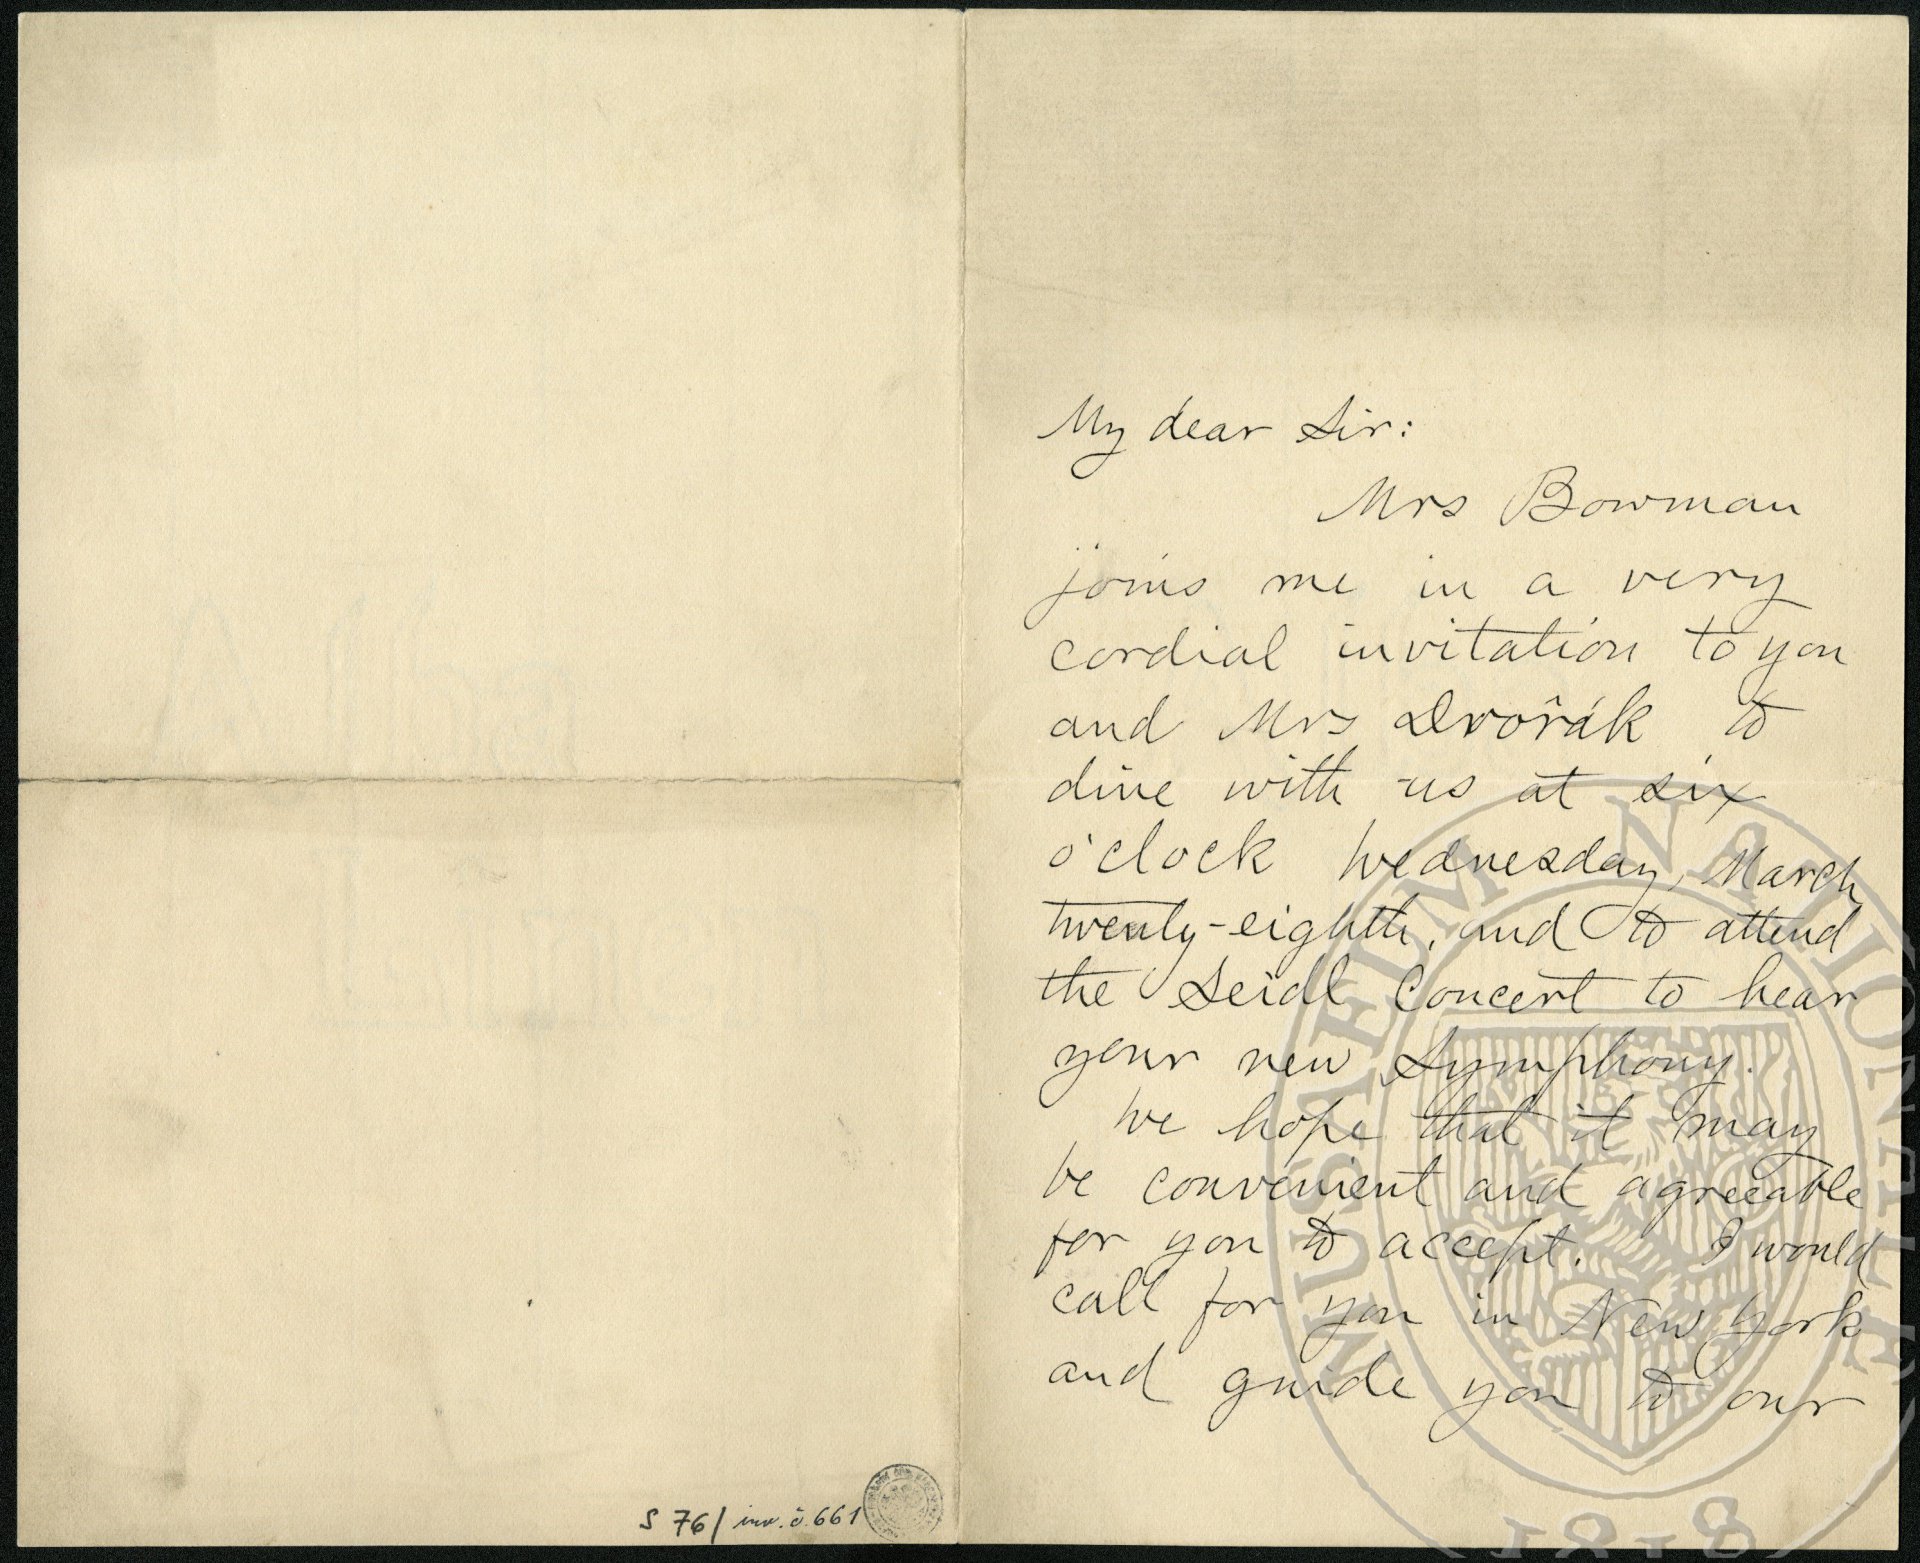 My dear Sir:
Mrs Bowman
joins me in a very
cordial invitation to you
and Mrs Dvořák to
dine with us at six
o'clock Wednesday, March
twenty-eighth, and to attend
the Seidl Concert to hear
your new Symphony.
We hope that it may
be convenient and agreeable
for you to accept. I would
call for you in New York
and guide you to our
S 76/ inv. č. 661
MUSAEUM NATIONALE
1818